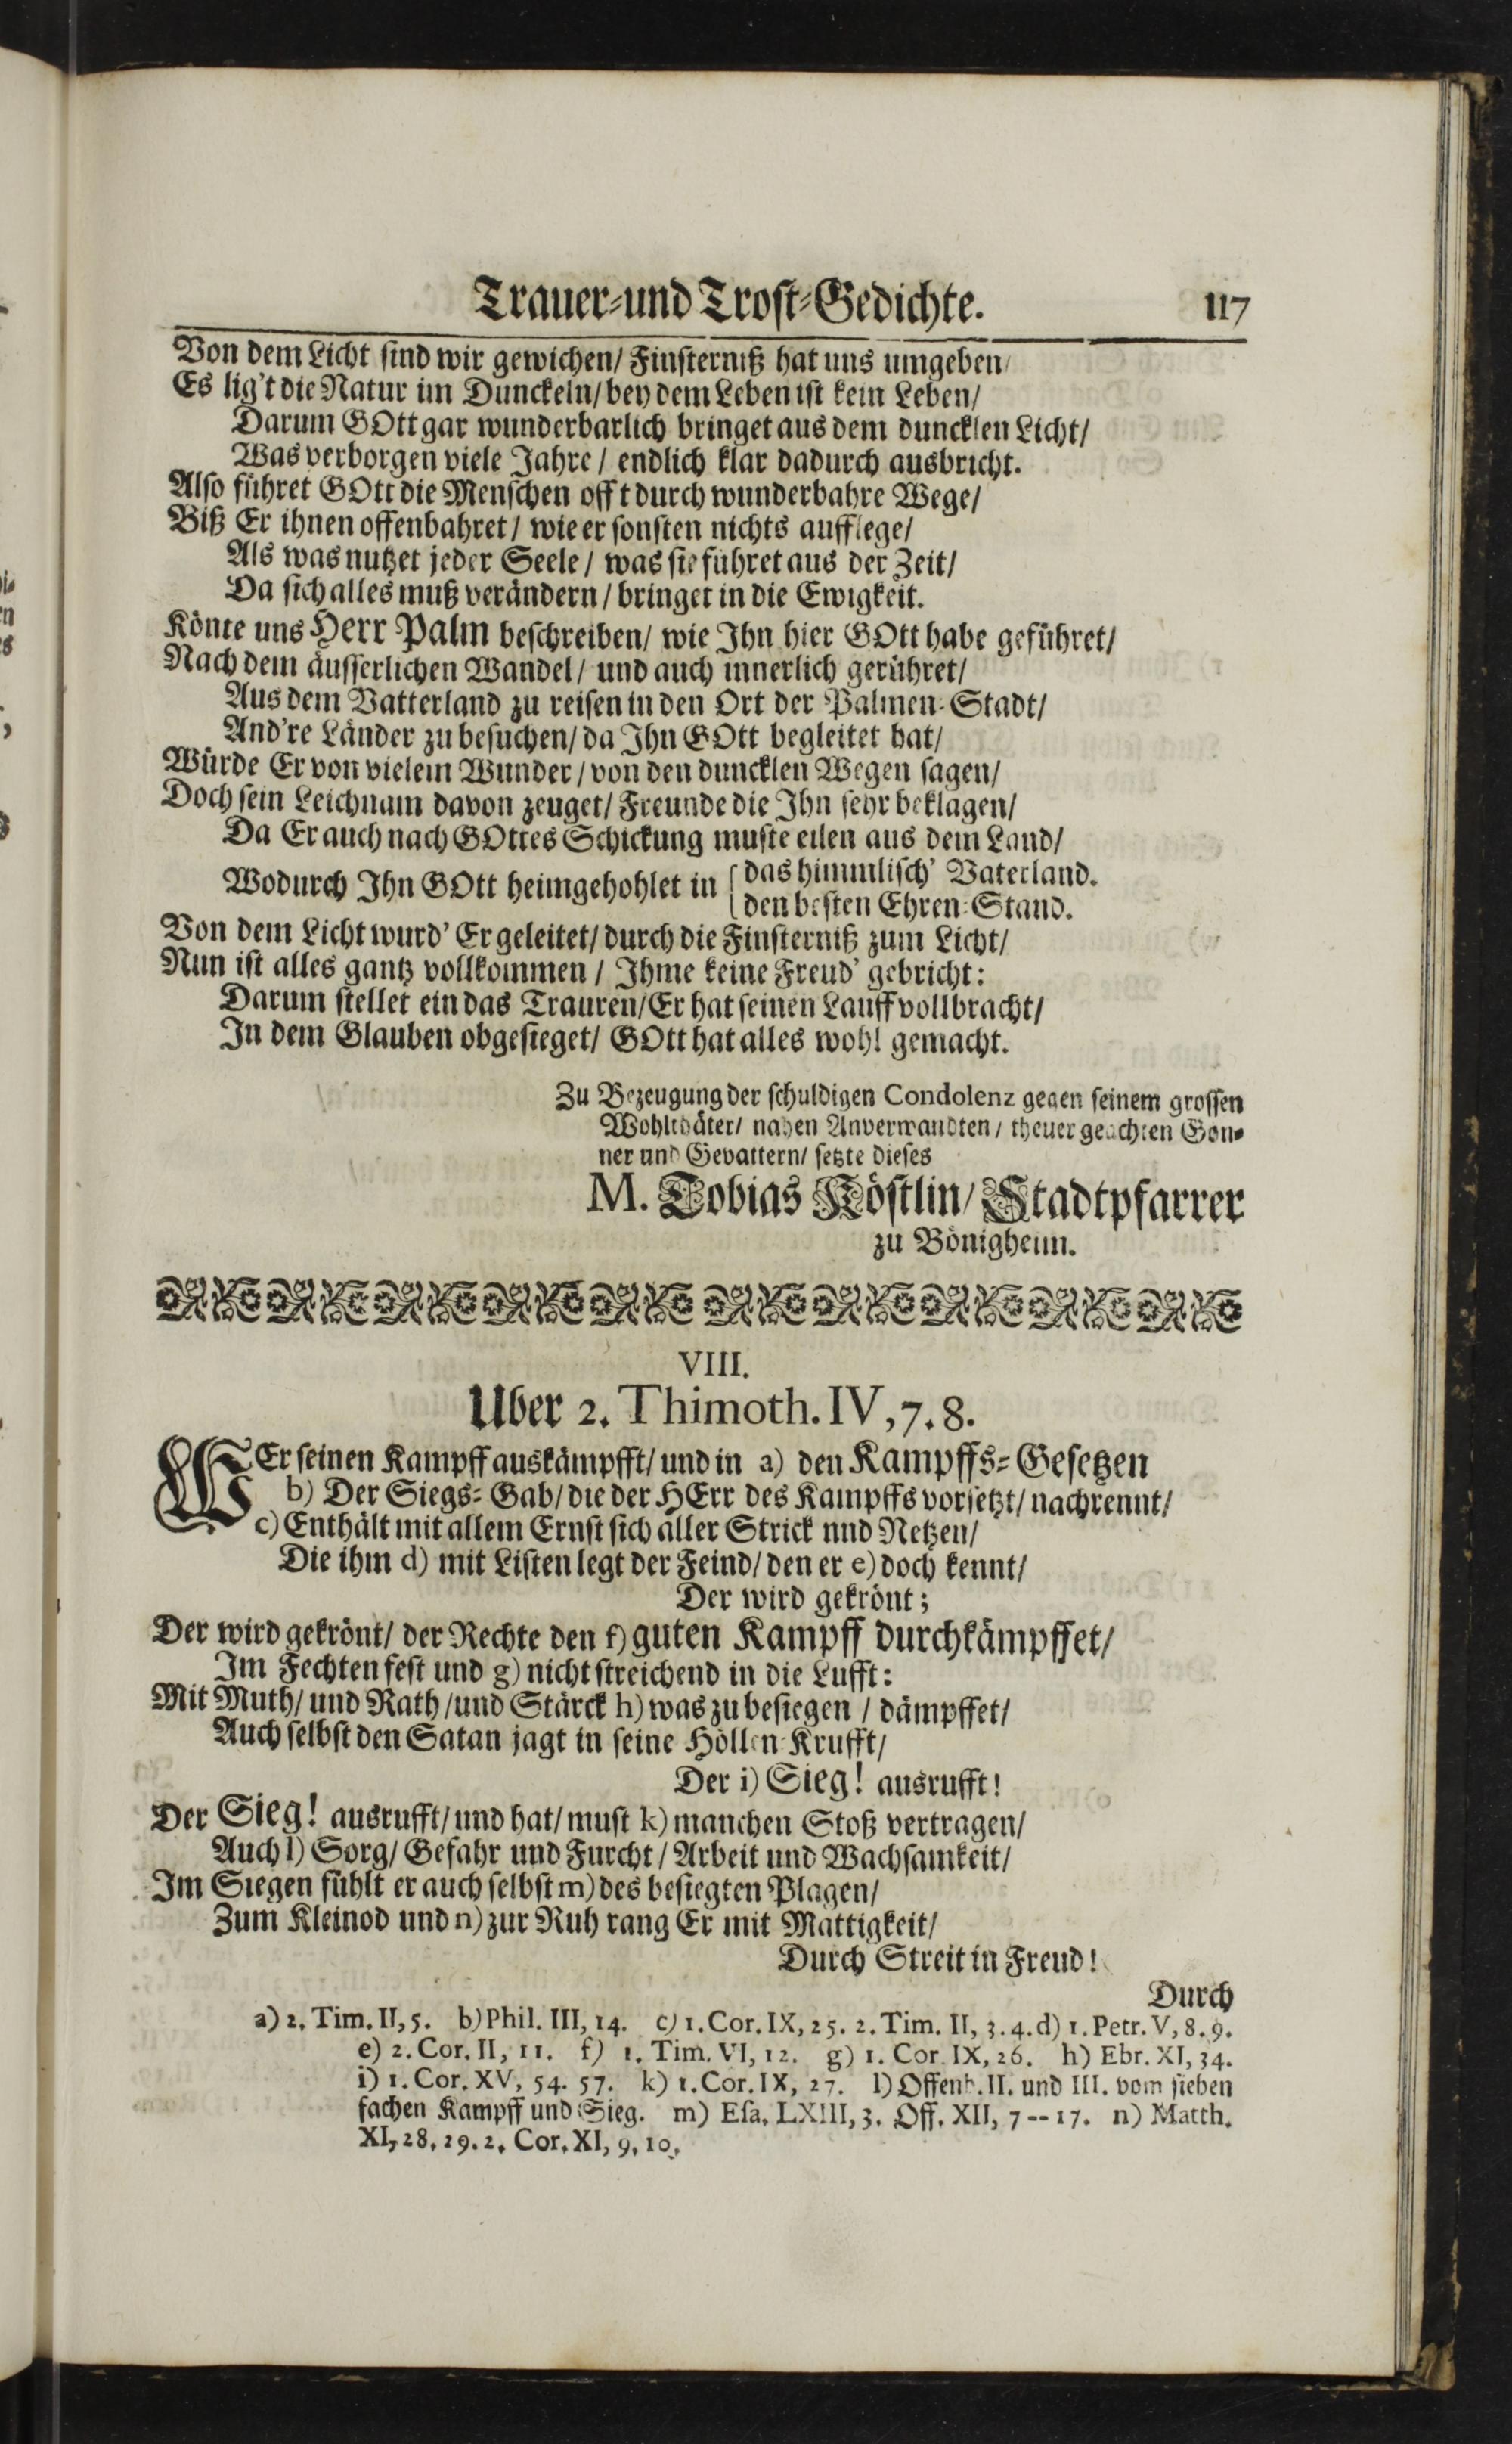 Trauer-und Trost-Gedichte. 117
Von dem Licht sind wir gewichen/ Finsterniß hat uns umgeben/
Es lig't die Natur im Dunckeln/ bey dem Leben ist kein Leben/
Darum GOtt gar wunderbarlich bringet aus dem duncklen Licht/
Was verborgen viele Jahre/ endlich klar dadurch ausbricht.
Also führet GOtt die Menschen offt durch wunderbahre Wege/
Biß Er ihnen offenbahret/ wie er sonsten nichts aufflege/
Als was nutzet jeder Seele/ was sie führet aus der Zeit/
Da sich alles muß verändern/ bringet in die Ewigkeit.
Könte uns Herr Palm beschreiben/ wie Ihn hier GOtt habe geführet/
Nach dem äusserlichen Wandel/ und auch innerlich gerühret/
Aus dem Vatterland zu reisen in den Ort der Palmen-Stadt/
And're Länder zu besuchen/ da Ihn GOtt begleitet hat/
Würde Er von vielem Wunder/ von den duncklen Wegen sagen/
Doch sein Leichnam davon zeuget/ Freunde die Ihn sehr beklagen/
Da Er auch nach GOttes Schickung muste eilen aus dem Land/
Wodurch Ihn GOtt heimgehohlet in { das himmlisch' Vaterland.
den besten Ehren-Stand.
Von dem Licht wurd' Er geleitet/ durch die Finsterniß zum Licht/
Nun ist alles gantz vollkommen/ Ihme keine Freud' gebricht:
Darum stellet ein das Trauren/ Er hat seinen Lauff vollbracht/
In dem Glauben obgesieget/ GOtt hat alles wohl gemacht.
Zu Bezeugung der schuldigen Condolenz gegen seinem grossen
Wohlthäter/ nahen Anverwandten/ theuer geachten Gön-
ner und Gevattern/ setzte dieses
M. Tobias Köstlin/ Stadtpfarrer
zu Bönigheim.
VIII.
Uber 2. Thimoth. IV, 7. 8.
WEr seinen Kampff auskämpfft/ und in a) den Kampffs-Gesetzen
b) Der Siegs-Gab/ die der HErr des Kampffs vorsetzt/ nachrennt/
c) Enthält mit allem Ernst sich aller Strick nnd Netzen/
Die ihm d) mit Listen legt der Feind/ den er e) doch kennt/
Der wird gekrönt;
Der wird gekrönt/ der Rechte den f) guten Kampff durchkämpffet/
Im Fechten fest und g) nicht streichend in die Lufft:
Mit Muth/ und Rath/ und Stärck h) was zu besiegen/ dämpffet/
Auch selbst den Satan jagt in seine Höllen-Krufft/
Der i) Sieg! ausrufft!
Der Sieg! ausrufft/ und hat/ must k) manchen Stoß vertragen/
Auch l) Sorg/ Gefahr und Furcht/ Arbeit und Wachsamkeit/
Im Siegen fühlt er auch selbst m) des besiegten Plagen/
Zum Kleinod und n) zur Ruh rang Er mit Mattigkeit/
Durch Streit in Freud!
Durch
a) 2. Tim. II, 5. b) Phil. III, 14. c) 1. Cor. IX, 25. 2. Tim. II, 3. 4. d) 1. Petr. V, 8. 9.
e) 2. Cor. II, 11. f) 1. Tim. VI, 12. g) 1. Cor. IX, 26. h) Ebr. XI, 34.
i) 1. Cor. XV, 54. 57. k) 1. Cor. IX, 27. l) Offenb. II. und III. vom sieben
fachen Kampff und Sieg. m) Esa. LXIII, 3. Off. XII, 7--17. n) Matth.
XI, 28. 29. 2. Cor. XI, 9. 10.